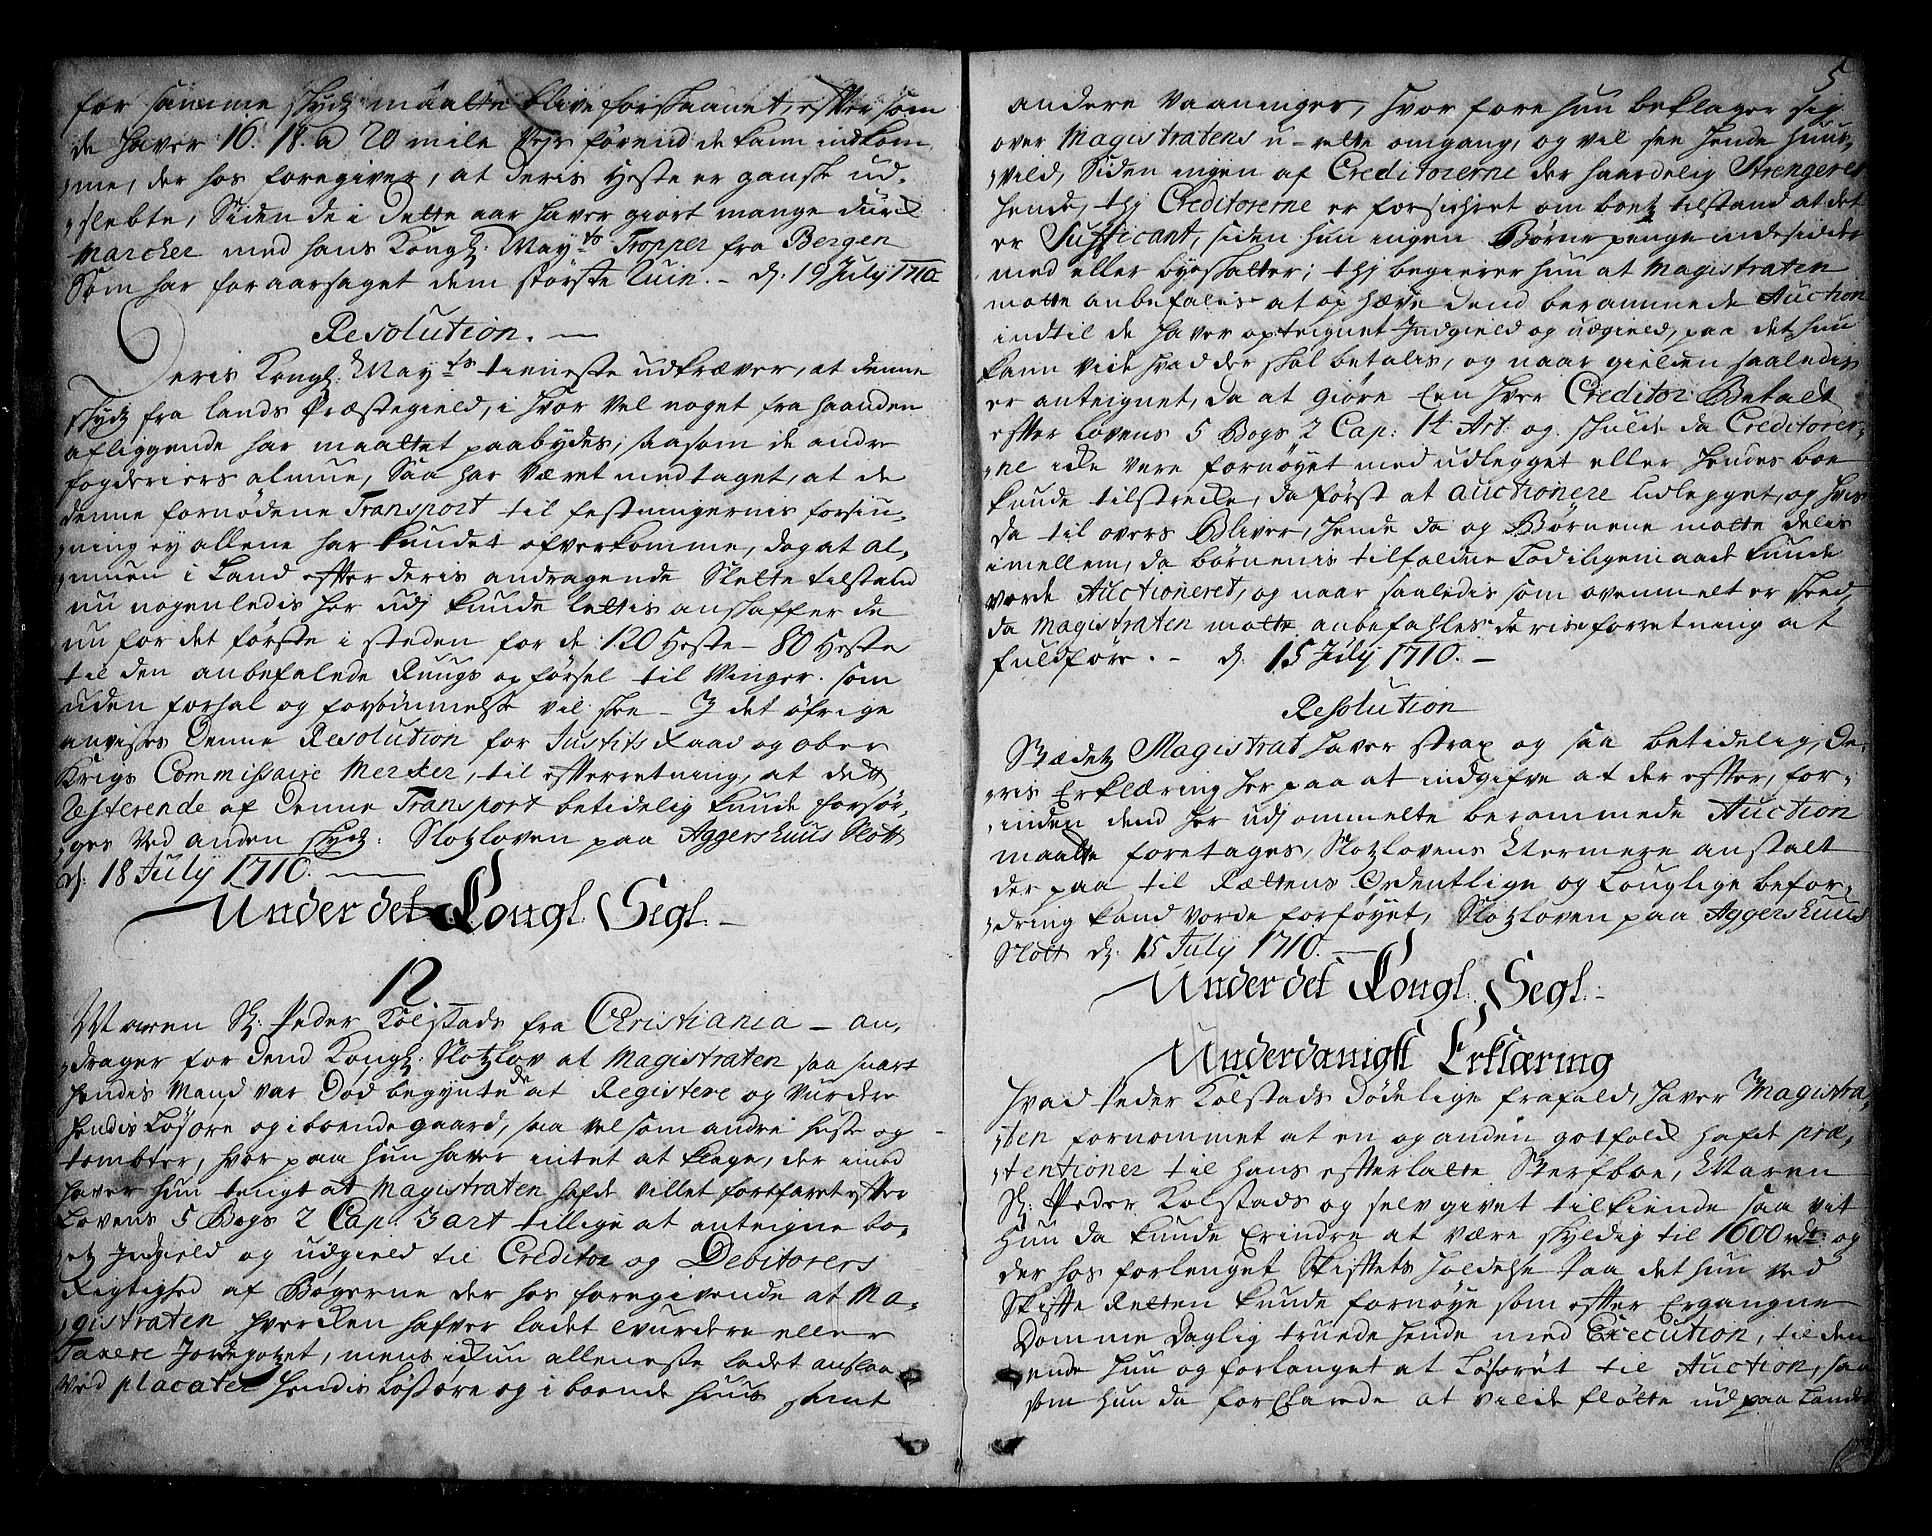 for samme skydz maatte blive forskaanet, efftersom
de haver 16. 18. a 20 mile Vejs førend de kann indkom
„me, der hos foregiver, at deris Heste er ganske ud-
„slebte, Siden de i Dette aar haver giort mange durch
Marcher med hans Kongl: Mayts Tropper fra Bergen
Som har foraarsaget dem største Ruin. - d. 19 July 1710.
Resolution. —
Deris Kongl: Mayts tieneste udkræver, at denne
skydz fra lands Præstegield, i hvor vel noget fra haanden
afliggende har maattet paabydes, saasom de andre
fogderiers almue, saa har været medtaget, at de
denne fornødene Transport til festningernis forsiu-
„ning ey allene har kundet afverkomme, dog at al-
„muen i Land effter deris andragende Slette tilstand
nu nogenledis her udj kunde lettis anskaffer de
nu for det første i steden for de 120 Heste - 80 Heste
til den anbefalede Ruugs opførsel til Winger. som
uden forhal og forsømmelse vil skee - J det øfrige
anvises Denne Resolution for Justits Raad og ober
Krigs Commissaire Mercker, til effterretning, at dets
Resterende af Denne Transport betidelig kunde forsør-
„ges ved anden skydz: Slotzloven paa Aggershuus Slott
d. 18 July 1710. —
Under det Kongl. Segl. -
12
Maren Sl: Peder Kolstads fra Christiania - an-
„drager for dend Kongl: Slotzlov at Magistraten saa snart
hendis Mand var Død begynte de at Registere og Vurdere
hendis Løsøre og iboende gaard, saa vel som andre huse og
tombter, hvor paa hun haver intet at klage, der imod
haver hun tengt at Magistraten hafde villet fortfaret effter
Lovens 5 Bogs 2 Cap. 3 art tillige at anteigne bo-
„etz Indgield og udgield til Creditor og Debitorers
Rigtighed af Bøgerne der hos foregivende at Ma-
„gistraten hverken hafver ladet Vurdere eller
Taxere Jordegotzet, mens ickun alleneste ladet anslaa
Ved placater hendis Løsøre og iboende huus samt
5
andere Vaaninger, hvor fore hun beklager sig
over Magistratens u-rette omgang, og vil see hende huus-
„vild, Siden ingen af Creditorerne der haardelig Strengerer
hende, thj Creditorerne er forsichret om boetz tilstand at det
er Sufficant, siden hun ingen Børnepenge indesidder
med eller byeskatter; thj begierer hun at Magistraten
motte anbefales at ophæve dend berammede Auction
indtil de haver opteignet Indgield og udgield, paa det hun
kann vide hvad der skal betalis, og naar gielden saaledis
er anteignet, da at giøre Een hver Creditor Betalt
effter Lovens 5 Bogs 2 Cap: 14 Art. og skulde da Creditorer-
„ne icke vere fornøyet med udlegget eller hendes boe
kunde tilstrecke, da først at auctionere udlegget, og hvis
da til overs Bliver, hende da og Børnene motte delis
imellem, da børnenis tilfaldne Lod i ligemaade kunde
vorde Auctioneret, og naar saaledis som ovenmelt er skeed,
da Magistraten motte anbefahles deris forretning at
fuldføre. - d. 15 July 1710. -
Resolution
Stædetz Magistrat haver strax og saa betidelig de-
„ris Erklæring her paa at indgifve at der effter, for-
„inden dend her udj ommelte berammede Auction
maatte foretages, Slotzlovens Nermere anstalt
der paa til Rettens Ordentlige og Louglige befor-
„dring kand vorde forføyet, Slotzloven paa Aggershuus
Slott d. 15 July 1710. —
Under det Kongl. Segl. -
Underdanigst Erklæring
Hvad Peder Kolstads Dødelige frafald, haver Magistra-
„ten fornommet at en og anden gotfolk hafde præ-
„tentioner til hans effterlatte Sterfboe, Maren
Sl: Peder Kolstads og selv givet tilkiende saa vit
hun da kunde Erindre at være skyldig til 1600 rdr: og
der hos forlanget Skifftets holdelse paa det hun ved
Skiffte Retten kunde fornøye som effter Ergangne
Domme Daglig truede hende med Execution, til den
ende hun og forlanget at Løsøret til Auction, saa
som hun da forklarede at vilde fløtte ud paa Landet